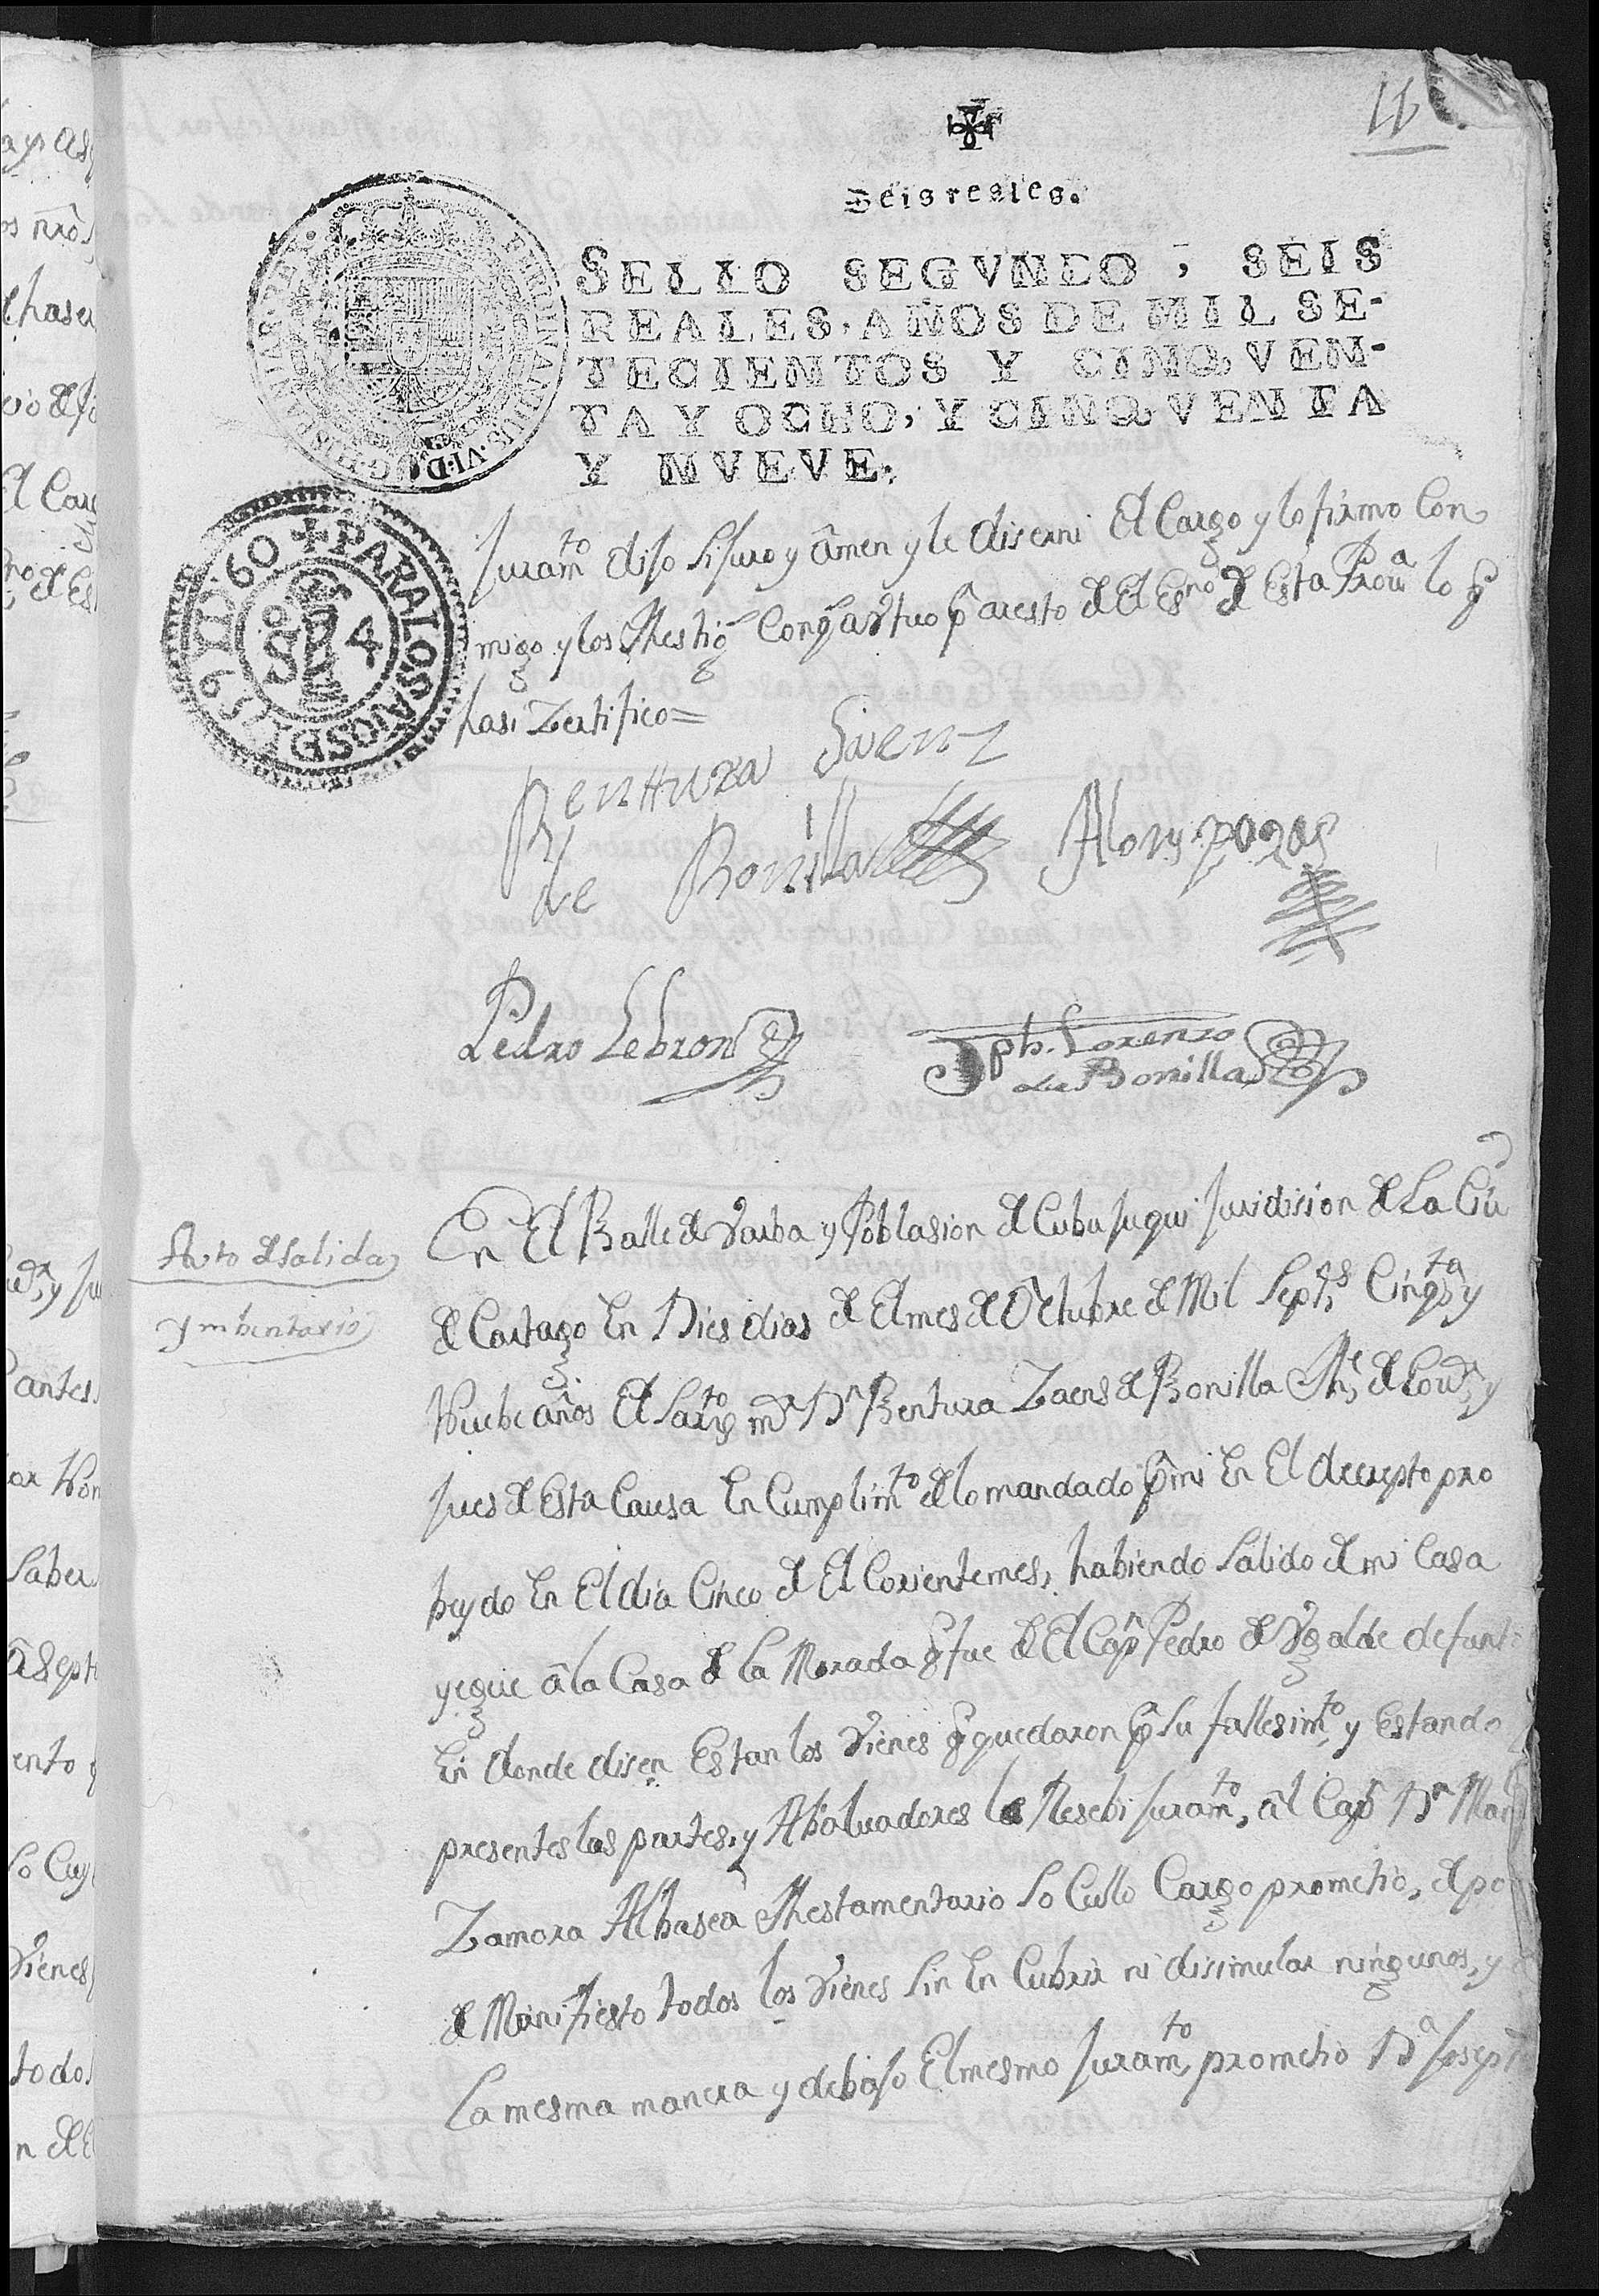 11
Seis reales.
SELLO SEGVNDO, SEIS
REALES, AÑOS DE MIL SE-
TECIENTOS Y CINQVEN-
TA Y OCHO, Y CINQVENTA
Y NVEVE.
FERDINANDUS·VI·D·G·HISPANIAR·REX
PARA LOS AÑOS DE 60
Juramto diso si juro y amen y le diserni El Cargo y lo firmo Con
migo y los Thestigs Conqn actuo pr aresto de El Esno de Esta Prova lo q
hasi Zertifico=
Benttura Saenz
de Bonilla
Pedro Lebron
Jph. Lorenzo
de Bonilla
Auto de salida
Ymbentario
En El Balle de Barba y Poblasion de Cubujuqui Juridision de La Ciud
de Cartago En Dies dias de El mes de Octubre de Mil Septs Cinqta y
Nuebe años El Sargto mr Dn Bentura Zaens de Bonilla The de Govr y
Jues de Esta Causa En Cumplimto de lo mandado pr mi En El decrepto pro
beydo En El dia Cinco de El Corriente mes, habiendo salido de mi Casa
yegue a la Casa de la Morada q fue de El Capn Pedro de Ugalde defunto
En donde disen Estan los Bienes q quedaron pr su fallesimto, y Estando
presentes las partes, y Abaluadores les Resebi juramto, al Capn Dn Man
Zamora Albasea Thestamentario so Cullo Cargo prometio, de po
de Manifiesto todos los Bienes sin En Cubrir ni disimular ningunos, y
La mesma manera y debajo El mesmo juramto prometio Da Joseph